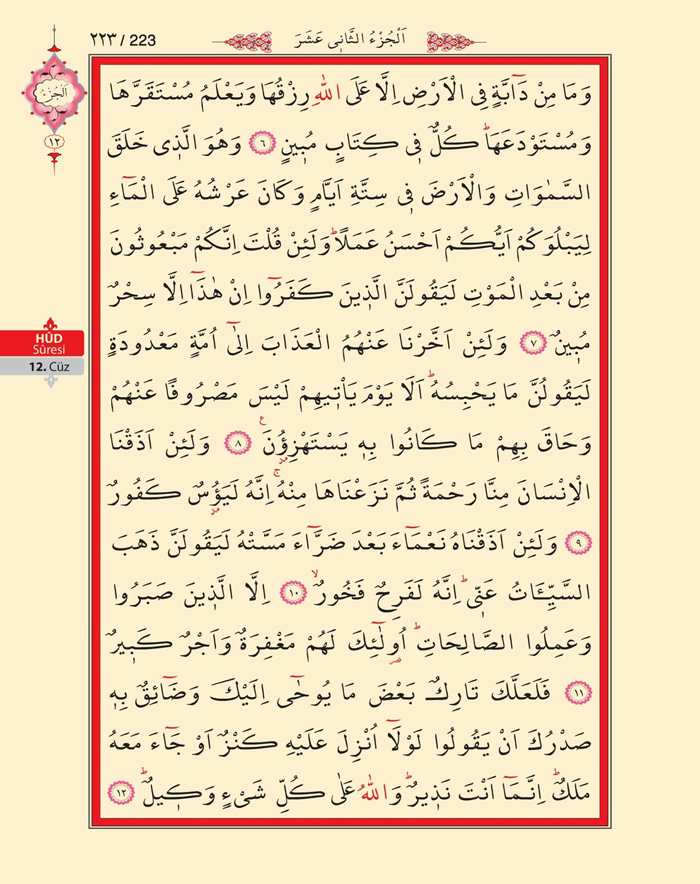 ٢٢٣ / 223
اَلْجُزْءُ الثَّانٖي عَشَرَ
اَلْجُزْءُ
١٢
وَمَا مِنْ دَٓابَّةٍ فِي الْاَرْضِ اِلَّا عَلَى اللّٰهِ رِزْقُهَا وَيَعْلَمُ مُسْتَقَرَّهَا
وَمُسْتَوْدَعَهَاۜ كُلٌّ فٖي كِتَابٍ مُبٖينٍ ﴿٦﴾ وَهُوَ الَّذٖي خَلَقَ
السَّمٰوَاتِ وَالْاَرْضَ فٖي سِتَّةِ اَيَّامٍ وَكَانَ عَرْشُهُ عَلَى الْمَٓاءِ
لِيَبْلُوَكُمْ اَيُّكُمْ اَحْسَنُ عَمَلًاۜ وَلَئِنْ قُلْتَ اِنَّكُمْ مَبْعُوثُونَ
مِنْ بَعْدِ الْمَوْتِ لَيَقُولَنَّ الَّذٖينَ كَفَرُٓوا اِنْ هٰذَٓا اِلَّا سِحْرٌ
مُبٖينٌ ﴿٧﴾ وَلَئِنْ اَخَّرْنَا عَنْهُمُ الْعَذَابَ اِلٰٓى اُمَّةٍ مَعْدُودَةٍ
لَيَقُولُنَّ مَا يَحْبِسُهُۜ اَلَا يَوْمَ يَأْتٖيهِمْ لَيْسَ مَصْرُوفًا عَنْهُمْ
وَحَاقَ بِهِمْ مَا كَانُوا بِهٖ يَسْتَهْزِؤُ۫نَࣖ ﴿٨﴾ وَلَئِنْ اَذَقْنَا
الْاِنْسَانَ مِنَّا رَحْمَةً ثُمَّ نَزَعْنَاهَا مِنْهُۚ اِنَّهُ لَيَؤُ۫سٌ كَفُورٌ
﴿٩﴾ وَلَئِنْ اَذَقْنَاهُ نَعْمَٓاءَ بَعْدَ ضَرَّٓاءَ مَسَّتْهُ لَيَقُولَنَّ ذَهَبَ
السَّيِّـَٔاتُ عَنّٖيۜ اِنَّهُ لَفَرِحٌ فَخُورٌۙ ﴿١٠﴾ اِلَّا الَّذٖينَ صَبَرُوا
وَعَمِلُوا الصَّالِحَاتِۜ اُو۬لٰٓئِكَ لَهُمْ مَغْفِرَةٌ وَاَجْرٌ كَبٖيرٌ
﴿١١﴾ فَلَعَلَّكَ تَارِكٌ بَعْضَ مَا يُوحٰٓى اِلَيْكَ وَضَٓائِقٌ بِهٖ
صَدْرُكَ اَنْ يَقُولُوا لَوْلَٓا اُنْزِلَ عَلَيْهِ كَنْزٌ اَوْ جَٓاءَ مَعَهُ
مَلَكٌۜ اِنَّمَٓا اَنْتَ نَذٖيرٌۜ وَاللّٰهُ عَلٰى كُلِّ شَيْءٍ وَكٖيلٌۜ ﴿١٢﴾
HÛD
Sûresi
12. Cüz